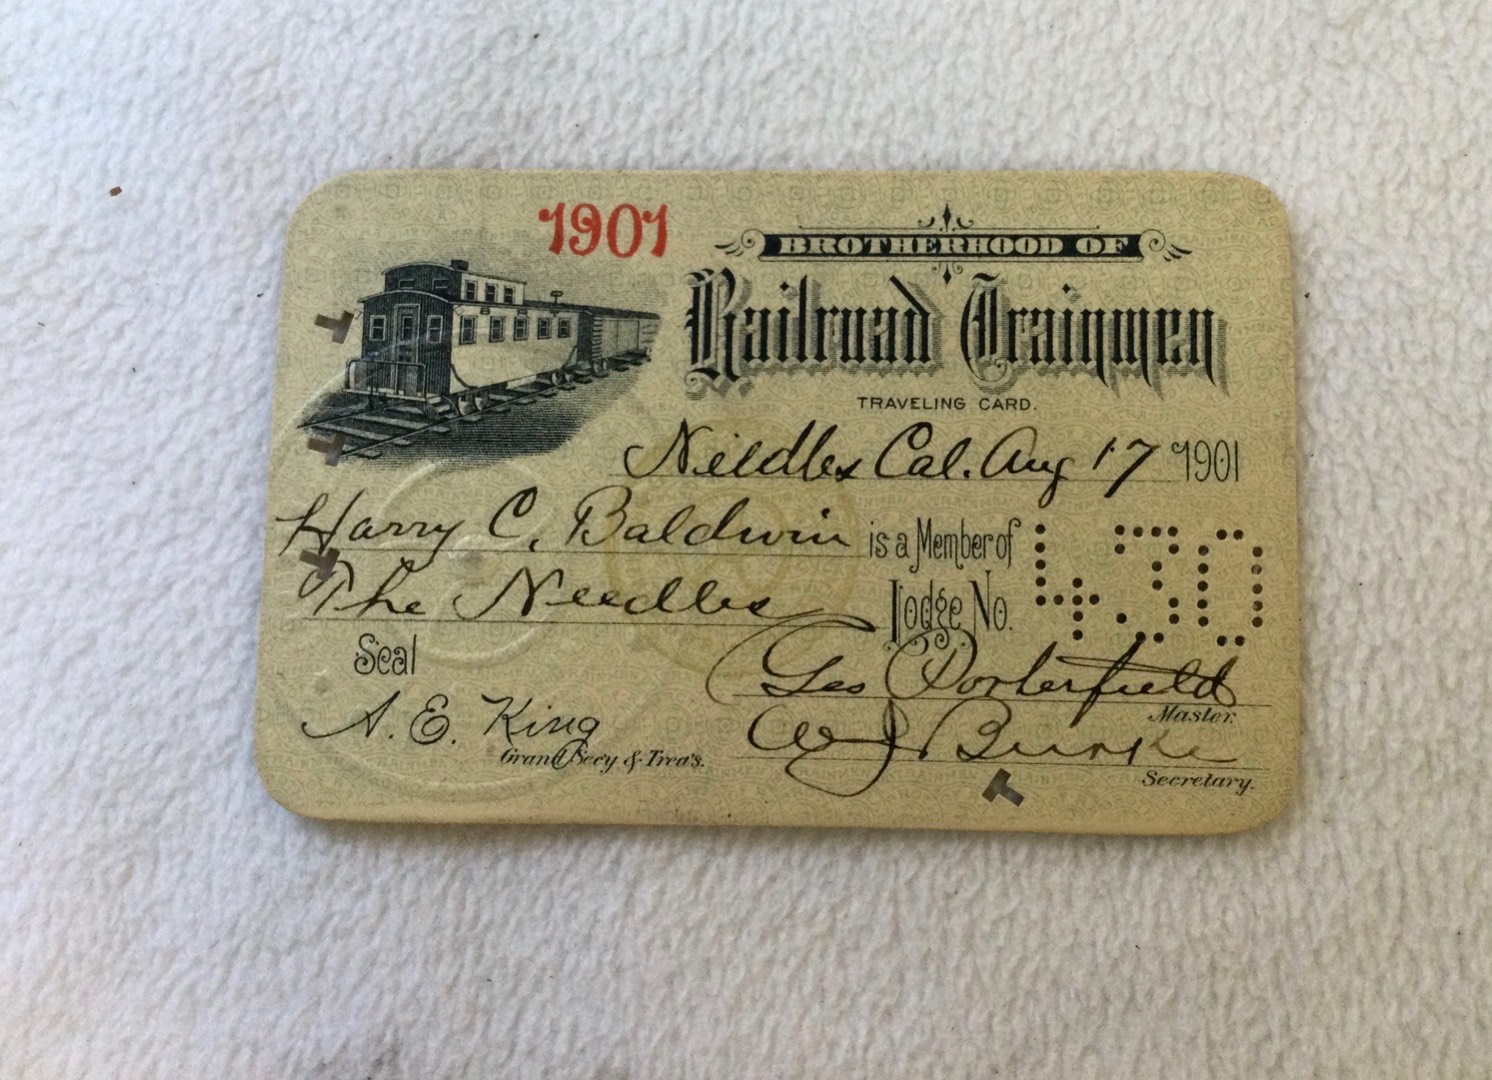 1901
BROTHERHOOD OF
Railroad Trainmen
TRAVELING CARD.
Needles Cal. Aug 17 1901
Harry C. Baldwin is a Member of
The Needles Lodge No. 430
Seal
Geo Porterfield
Master.
A. E. King
Grand Secy & Treas.
W J Burke
Secretary.